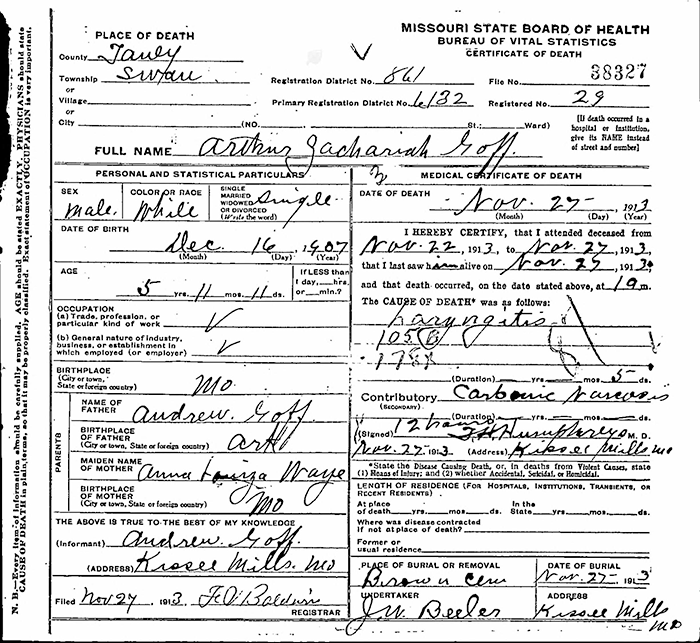 MISSOURI STATE BOARD OF HEALTH
BUREAU OF VITAL STATISTICS
CERTIFICATE OF DEATH
PLACE OF DEATH
County Taney
Township Swan
or
Village
or
City (NO. St.; Ward)
Registration District No. 861 File No. 38327
Primary Registration District No. 6132 Registered No. 29
[If death occurred in a
hospital or institution,
give its NAME instead
of street and number]
FULL NAME Arthur Zachariah Goff
PERSONAL AND STATISTICAL PARTICULARS
SEX
male.
COLOR OR RACE
White
SINGLE
MARRIED
WIDOWED
OR DIVORCED
(Write the word)
Single
DATE OF BIRTH
Dec. 16 1907
(Month) (Day) (Year)
AGE
5 yrs. 11 mos. 11 ds.
If LESS than
1 day, hrs.
or min.?
OCCUPATION
(a) Trade, profession, or
particular kind of work
(b) General nature of industry,
business, or establishment in
which employed (or employer)
BIRTHPLACE
(City or town,
State or foreign country)
Mo
PARENTS
NAME OF
FATHER
Andrew. Goff
BIRTHPLACE
OF FATHER
(City or town, State or foreign country)
Ark
MAIDEN NAME
OF MOTHER
Anna
BIRTHPLACE
OF MOTHER
(City or town, State or foreign country)
Mo
THE ABOVE IS TRUE TO THE BEST OF MY KNOWLEDGE
(Informant) Andrew. Goff.
(ADDRESS) Kissee Mills. Mo
Filed Nov 27 1913 Baldwin
REGISTRAR
MEDICAL CERTIFICATE OF DEATH
DATE OF DEATH
Nov. 27 1913
(Month) (Day) (Year)
I HEREBY CERTIFY, that I attended deceased from
Nov. 22, 1913, to Nov. 27 1913,
that I last saw him alive on Nov. 27 1913,
and that death occurred, on the date stated above, at m.
The CAUSE OF DEATH* was as follows:
Laryngitis
105 B
(Duration) yrs. mos. 5 ds.
Contributory Carbonic Narcosis
(SECONDARY)
(Duration) yrs. mos. ds.
12 hours
(Signed) Humphreys M. D.
Nov. 27 1913 (Address) Kissee Mills Mo
*State the Disease Causing Death, or, in deaths from Violent Causes, state
(1) Means of Injury; and (2) whether Accidental, Suicidal, or Homicidal.
LENGTH OF RESIDENCE (For Hospitals, Institutions, Transients, or
Recent Residents)
At place
of death yrs. mos. ds.
In the
State yrs. mos. ds.
Where was disease contracted
if not at place of death?
Former or
usual residence
PLACE OF BURIAL OR REMOVAL
Brown Cem
DATE OF BURIAL
Nov. 27- 1913
UNDERTAKER
J W Beeler
ADDRESS
Kissee Mills
Mo
N. B.—Every item of information should be carefully supplied. AGE should be stated EXACTLY. PHYSICIANS should state
CAUSE OF DEATH in plain terms, so that it may be properly classified. Exact statement of OCCUPATION is very important.